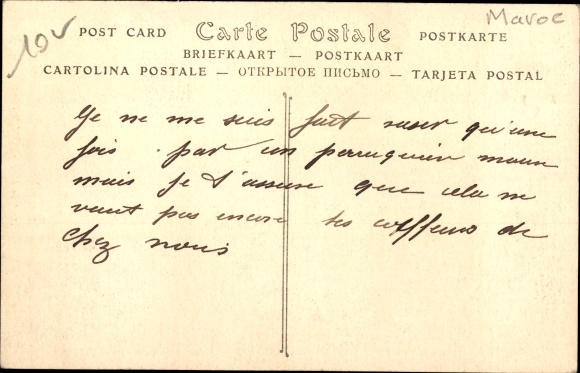 Maroc
10
POST CARD Carte Postale POSTKARTE
BRIEFKAART — POSTKAART
CARTOLINA POSTALE — ОТКРЫТОЕ ПИСЬМО — TARJETA POSTAL
Je ne me suis fait raser qu'une
fois par un perruquier maure
mais je t'assure que cela ne
vaut pas encore les coiffeurs de
chez nous